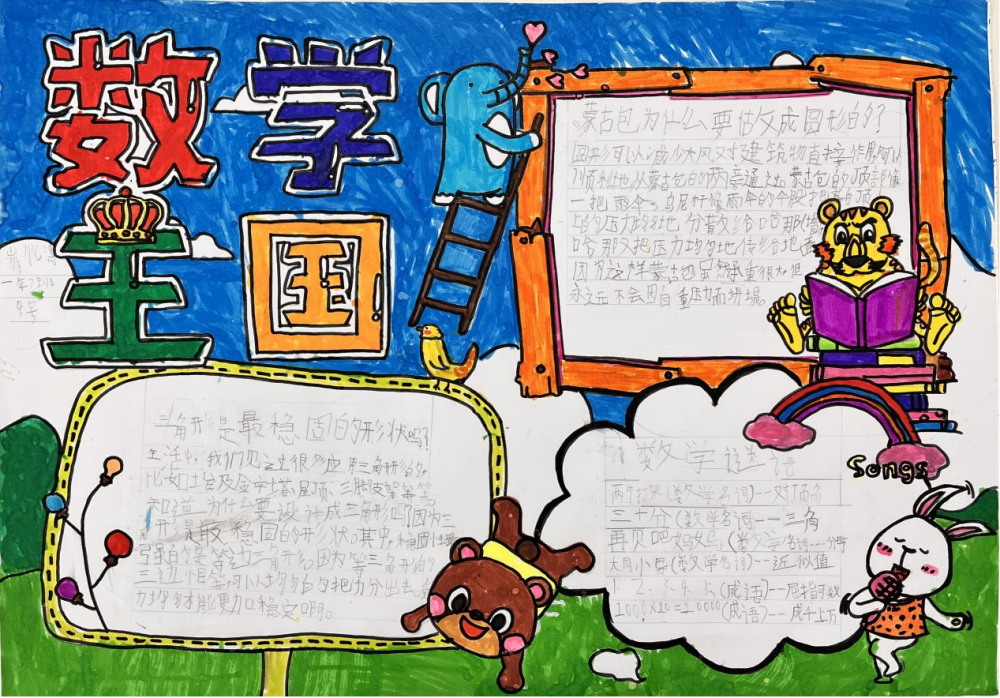 数学
王国
一年
4号
蒙古包为什么要做成圆形的?
圆形可以减少大风对建筑物直接作用
顺利地从蒙古包的两旁通过 蒙古包的顶部像
一把雨伞
的压力 地分散给哈那
哈那又把压力均匀地传给地
因为这样蒙古包虽然 重很 但
永远不会因自重压力而坍塌。
三角形是最稳固的形状吗?
生活中,我们见过很多应用三角形的
比如埃及金字塔屋顶、三脚支架等等
知道为什么要设计成三角形吗?因为三
角形是最稳固的形状。其中,稳固性最
强的是等边三角形,因为等三角形的
三边 等,可以均匀把力分出去,
力均匀才能更加稳定啊。
数学谜语
两 (数学名词)--对顶角
三十分(数学名词--三角
再见吧妈妈(数学名词--分母
大同小异(数学名词)--近似值
1、2、3、4、5、(成语)--屈指可数
1000×10=10000(成语)--成千上万
Songs